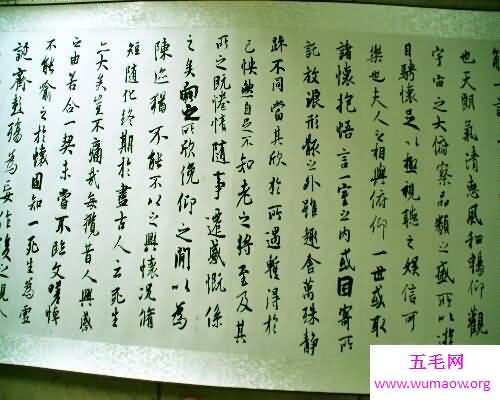 也天朗氣清惠風和暢仰觀
宇宙之大俯察品類之盛所以遊
目騁懷足以極視聽之娛信可
樂也夫人之相與俯仰一世或取
諸懷抱悟言一室之內或因寄所
託放浪形骸之外雖趣舍萬殊靜
躁不同當其欣於所遇暫得於
己怏然自足不知老之將至及其
所之既惓情隨事遷感慨係
之矣向之所欣俛仰之間以為
陳迹猶不能不以之興懷況脩
短隨化終期於盡古人云死生
亦大矣豈不痛哉每攬昔人興感
之由若合一契未嘗不臨文嗟悼
不能喻之於懷固知一死生為虛
誕齊彭殤為妄作後之視
五毛网
www.wumaow.org